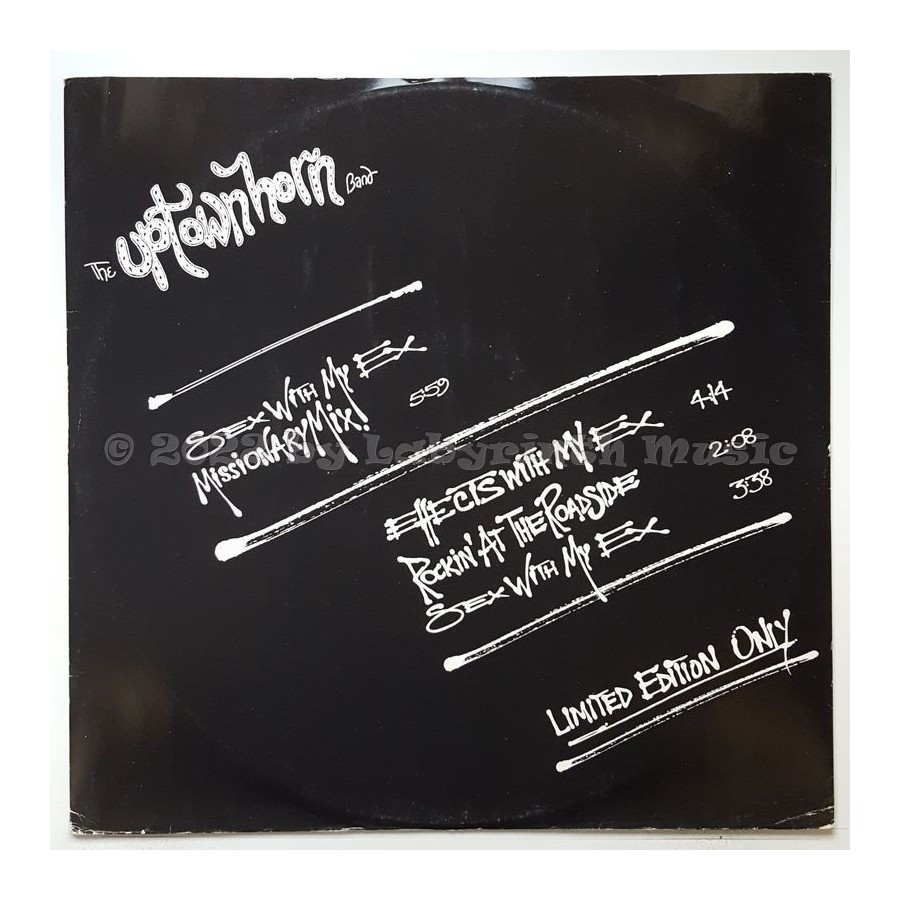 The uptownhorn Band
Sex With My Ex
Missionary Mix! 5:59
Effects With My Ex 4:14
Rockin' At The Roadside 2:08
Sex With My Ex 3:38
Limited Edition Only
© 2022 by Labyrinth Music